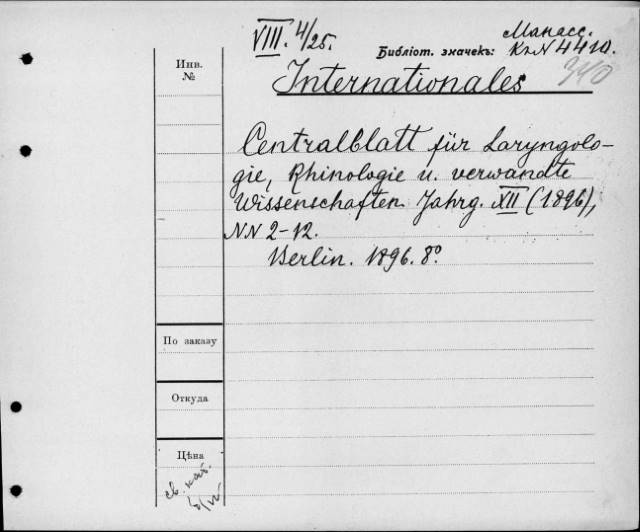 VIII. 4/25.
Библіот. значекъ: Манасс. Кл N 4410.
Инв. №
Internationales
340
Centralblatt für Laryngolo-
gie, Rhinologie u. verwandte
Wissenschaften. Jahrg. XII (1896),
NN 2-12.
Berlin. 1896. 8°.
По заказу
Откуда
Цѣна
св. кат.